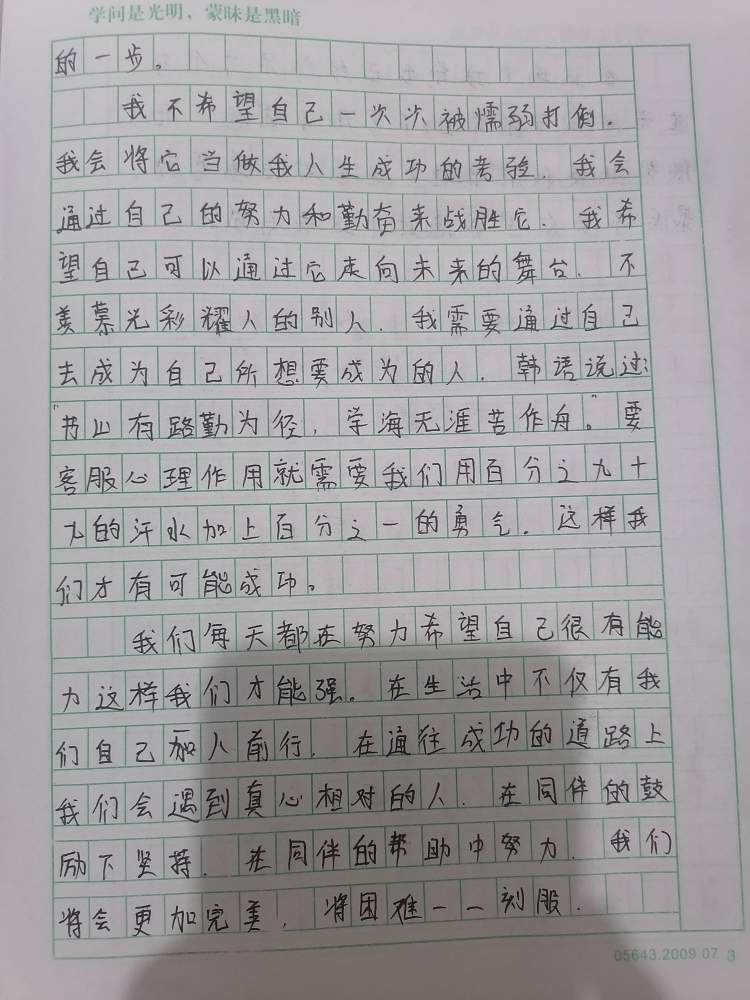 学问是光明，蒙昧是黑暗
的一步。
我不希望自己一次次被懦弱打倒.
我会将它当做我人生成功的考验. 我会
通过自己的努力和勤奋来战胜它. 我希
望自己可以通过它走向未来的舞台. 不
羡慕光彩耀人的别人. 我需要通过自己
去成为自己所想要成为的人. 韩语说过:
"书山有路勤为径, 学海无涯苦作舟。"要
客服心理作用就需要我们用百分之九十
九的汗水加上百分之一的勇气. 这样我
们才有可能成功。
我们每天都在努力希望自己很有能
力这样我们才能强. 在生活中不仅有我
们自己孤人前行. 在通往成功的道路上
我们会遇到真心相对的人. 在同伴的鼓
励下坚持. 在同伴的帮助中努力. 我们
将会更加完美! 将困难一一刻服.
05643.2009.07 3